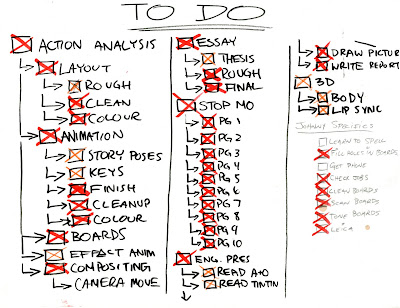 TO DO
ACTION ANALYSIS
LAYOUT
ROUGH
CLEAN
COLOUR
ANIMATION
STORY POSES
KEYS
FINISH
CLEANUP
COLOUR
BOARDS
EFFECT ANIM
COMPOSITING
CAMERA MOVE
ESSAY
THESIS
ROUGH
FINAL
STOP MO
PG 1
PG 2
PG 3
PG 4
PG 5
PG 6
PG 7
PG 8
PG 9
PG 10
ENG. PRES
READ A+O
READ TINTIN
DRAW PICTUR
WRITE REPORT
3D
BODY
LIP SYNC
JOHNNY SPECIFICS
LEARN TO SPELL
FILL HOLES IN BOARDS
GET PHONE
CHECK JOBS
CLEAN BOARDS
SCAN BOARDS
TONE BOARDS
LEICA